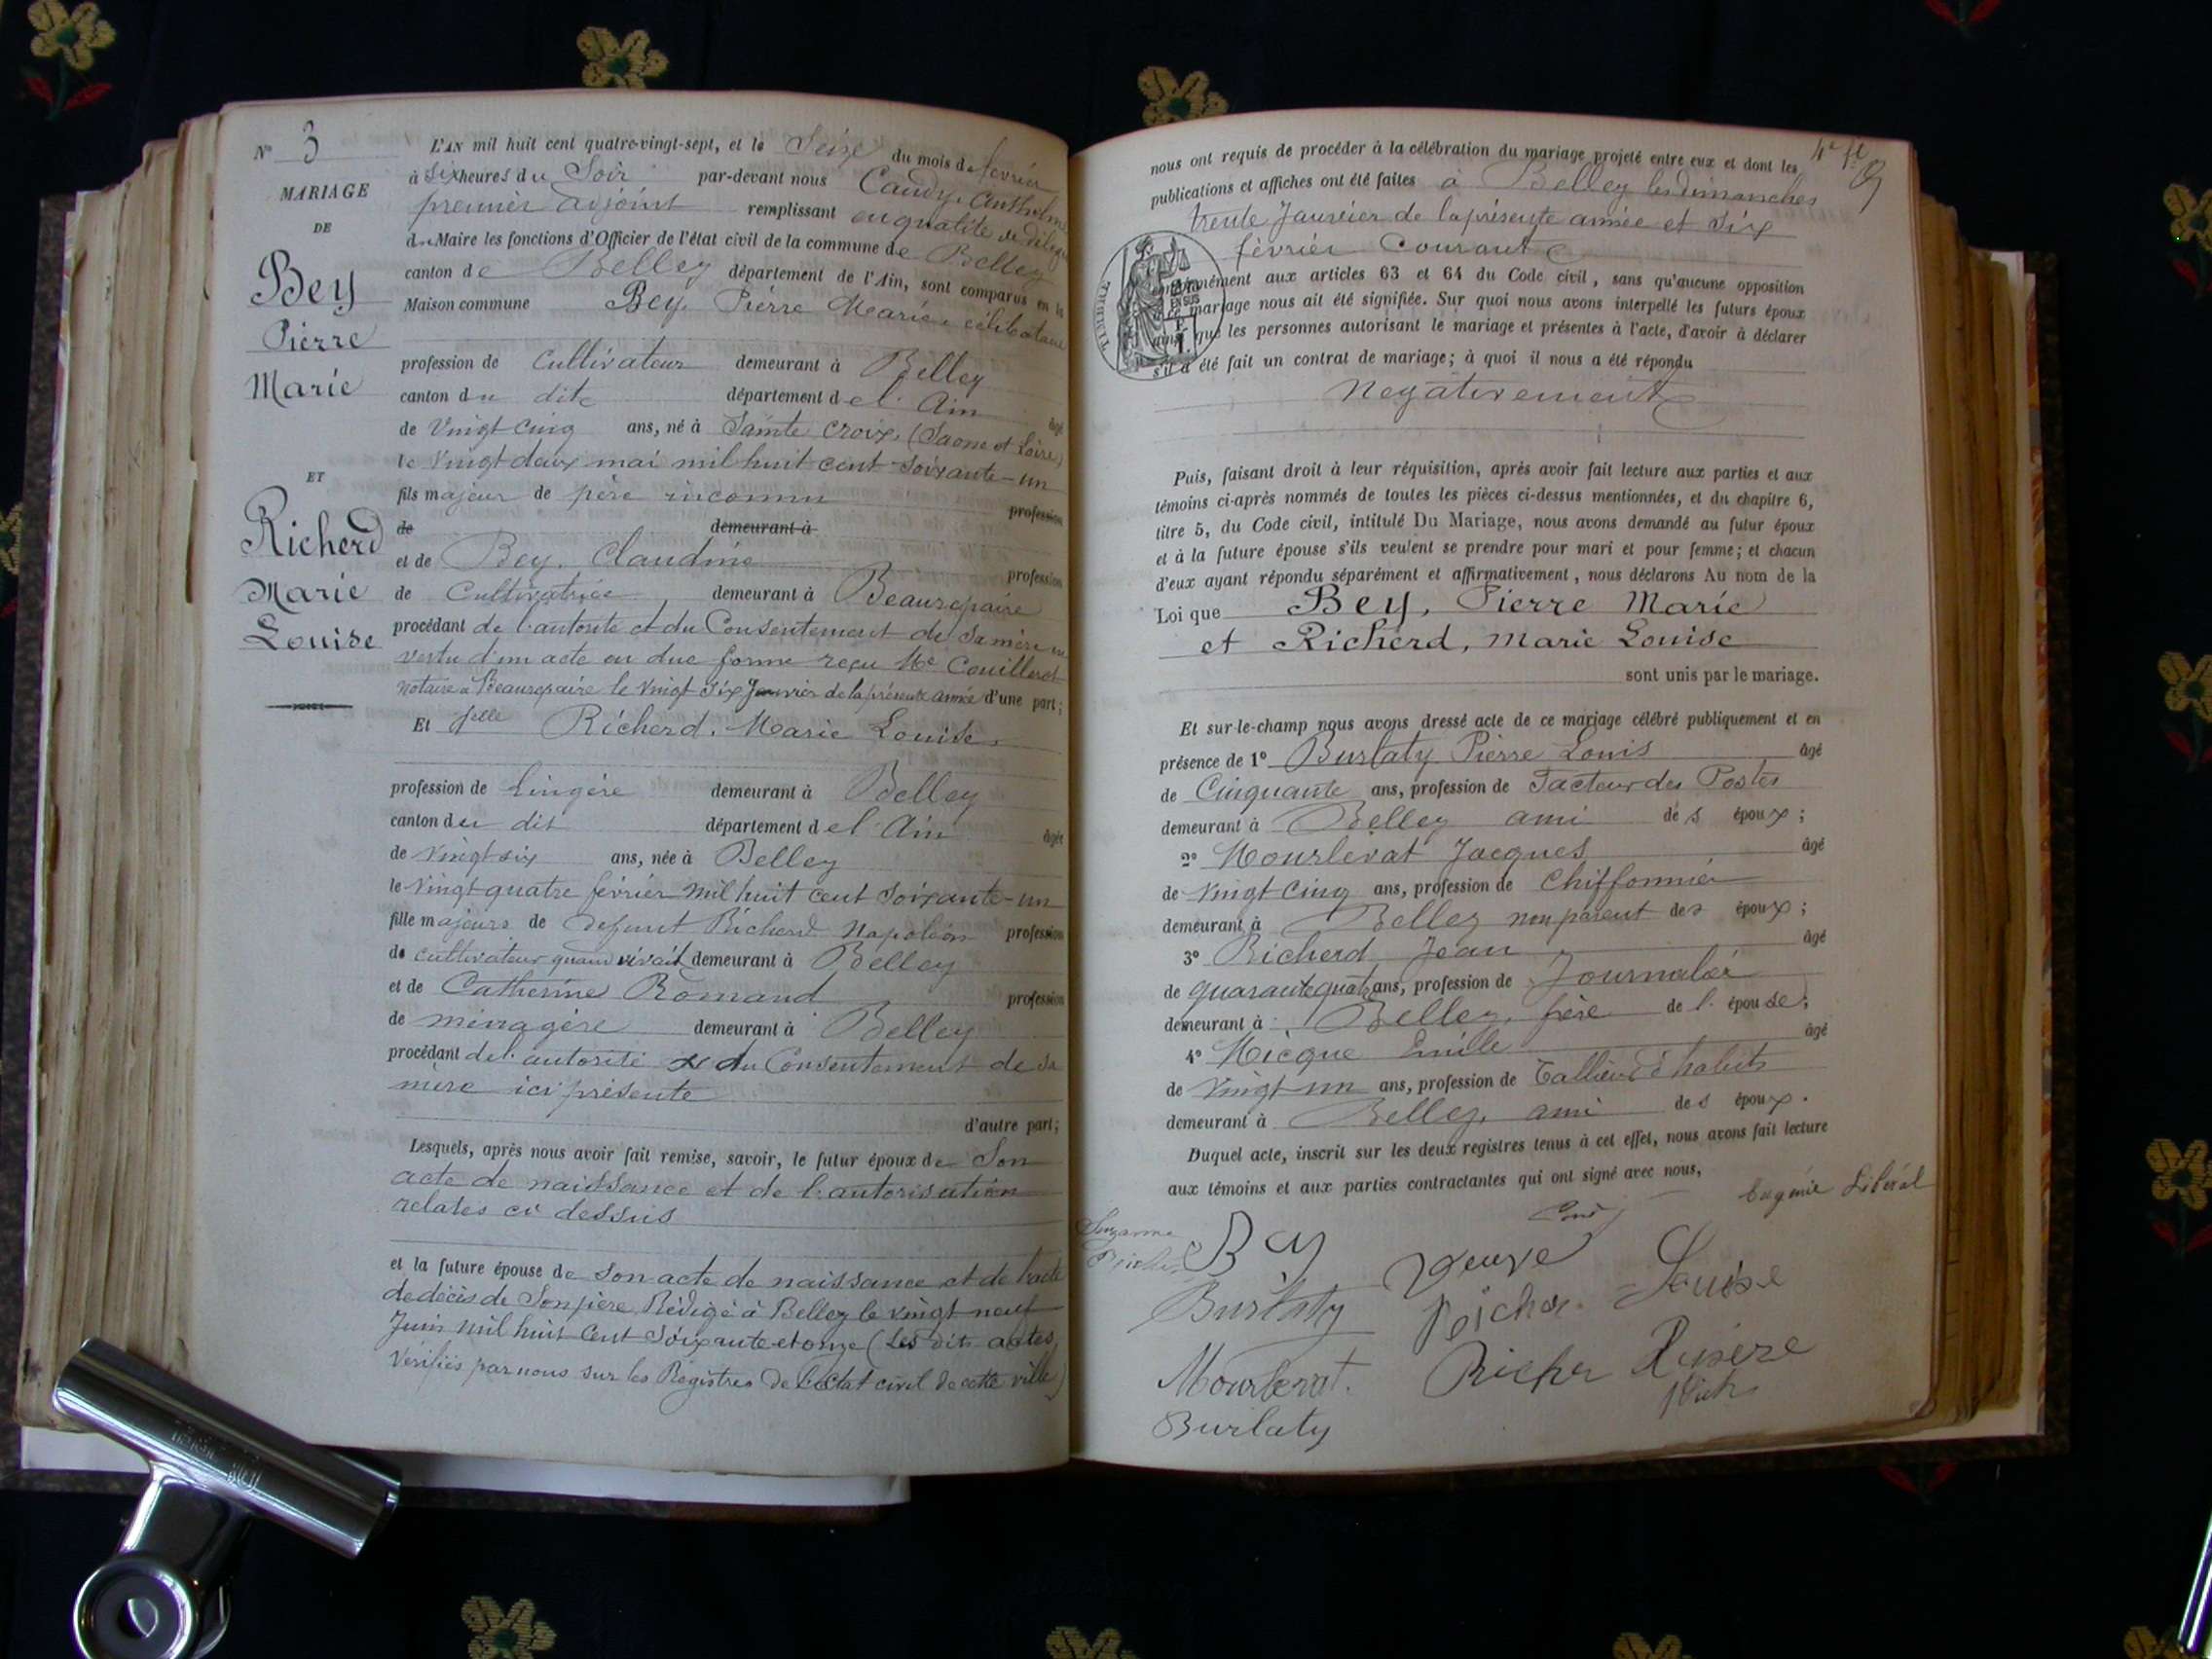 N° 3
MARIAGE
DE
Bey
Pierre
Marie
ET
Richerd
Marie
Louise
L'AN mil huit cent quatre-vingt-sept, et le Seize du mois de février
à Six heures du Soir par-devant nous Candy, Anthelme
premier adjoint remplissant en qualité de délégué
du Maire les fonctions d'Officier de l'état civil de la commune de Belley
canton de Belley département de l'Ain, sont comparus en la
Maison commune Bey, Pierre Marie, célibataire
profession de Cultivateur demeurant à Belley
canton du dit département de l'Ain âgé
de Vingt cinq ans, né à Sainte Croix, (Saone et Loire)
le Vingt deux mai mil huit cent soixante-un
fils majeur de père inconnu profession
de demeurant à
et de Bey, Claudine profession
de Cultivatrice demeurant à Beaurepaire
procédant de l'autorité et du Consentement de Sa mère en
vertu d'un acte en due forme reçu Me Couillerot
notaire à Beaurepaire le Vingt Six Janvier de la présente année d'une part;
Et Jelle Richerd, Marie Louise,
profession de Lingère demeurant à Belley
canton du dit département de l'Ain âgée
de Vingt six ans, née à Belley
le Vingt quatre février mil huit cent Soixante-un
fille majeure de defunt Richerd Napoléon profession
de cultivateur quand vivait demeurant à Belley
et de Catherine Romand profession
de ménagère demeurant à Belley
procédant de l'autorité et du Consentement de Sa
mère ici présente
d'autre part;
Lesquels, après nous avoir fait remise, savoir, le futur époux de Son
acte de naissance et de l'autorisation
relatés ci dessus
et la future épouse de Son acte de naissance et de l'acte
de décès de Son père Rédigé à Belley le Vingt neuf
Juin mil huit Cent Soixante et onze (Les dits actes
Vérifiés par nous sur les Registres de l'état civil de cette ville)
nous ont requis de procéder à la célébration du mariage projeté entre eux et dont les
publications et affiches ont été faites à Belley les dimanches
trente Janvier de la présente année et Six
février Courant
TIMBRE
conformément aux articles 63 et 64 du Code civil, sans qu'aucune opposition
à ce mariage nous ait été signifiée. Sur quoi nous avons interpellé les futurs époux
ainsi que les personnes autorisant le mariage et présentes à l'acte, d'avoir à déclarer
s'il a été fait un contrat de mariage; à quoi il nous a été répondu
Negativement
Puis, faisant droit à leur réquisition, après avoir fait lecture aux parties et aux
témoins ci-après nommés de toutes les pièces ci-dessus mentionnées, et du chapitre 6,
titre 5, du Code civil, intitulé Du Mariage, nous avons demandé au futur époux
et à la future épouse s'ils veulent se prendre pour mari et pour femme; et chacun
d'eux ayant répondu séparément et affirmativement, nous déclarons Au nom de la
Loi que Bey, Pierre Marie
et Richerd, Marie Louise
sont unis par le mariage.
Et sur-le-champ nous avons dressé acte de ce mariage célébré publiquement et en
présence de 1° Burlaty Pierre Louis âgé
de Cinquante ans, profession de Facteur des Postes
demeurant à Belley ami des époux;
2° Mourlevat Jacques âgé
de Vingt Cinq ans, profession de Chiffonnier
demeurant à Belley non parent des époux;
3° Richerd Jean âgé
de quarante quatre ans, profession de Journalier
demeurant à Belley, frère de l'épouse;
4° Micque Emile âgé
de Vingt un ans, profession de Tailleur d'habits
demeurant à Belley, ami des époux.
Duquel acte, inscrit sur les deux registres tenus à cet effet, nous avons fait lecture
aux témoins et aux parties contractantes qui ont signé avec nous,
Eugénie Libéral
Suzanne
Bey
Veuve
Louise
Burlaty
Richer
Mourlevat.
Burlaty